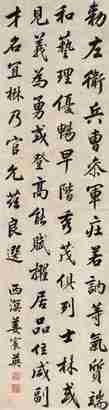 勅左衛兵曹參軍莊若訥等氣質端
和藝理優暢早階秀茂俱列士林或
見義為勇或登高能賦擢居品位咸副
才名宜楙乃官允茲良選
西溟姜宸英